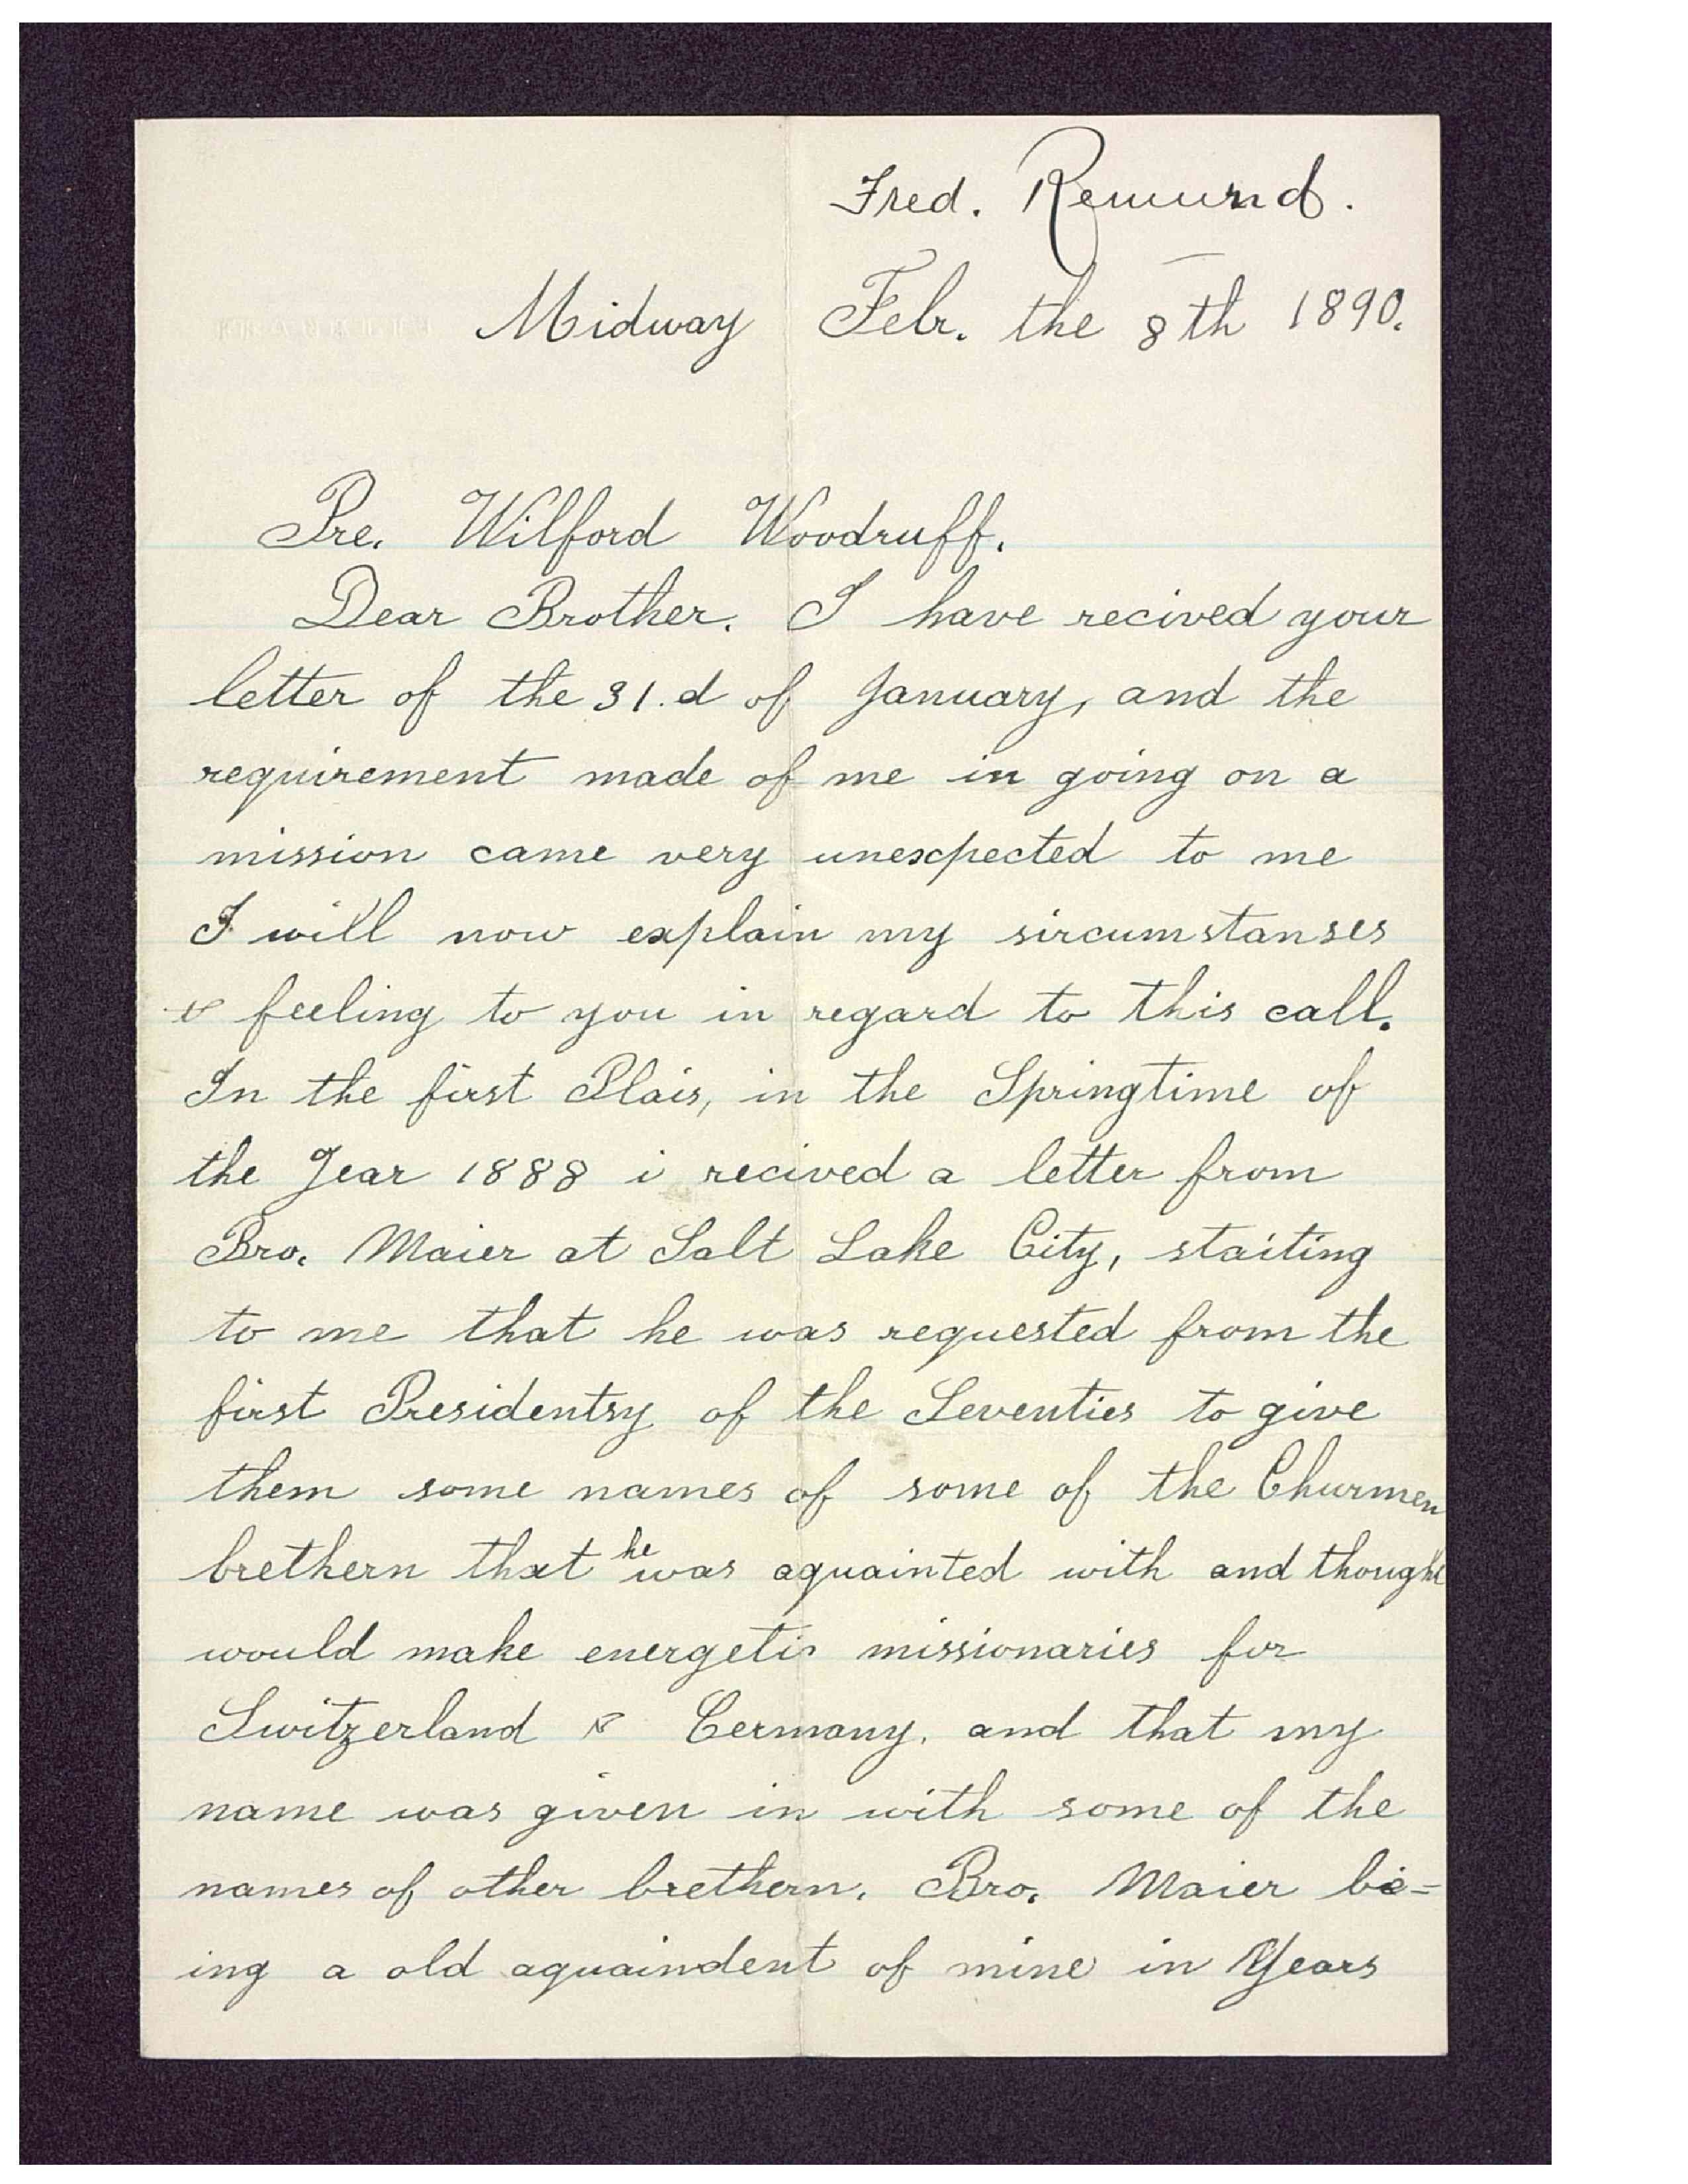 Fred. Remund.
Midway Febr. the 8th 1890.
Pre. Wilford Woodruff.
Dear Brother. I have recived your
letter of the 31.d of January, and the
requirement made of me in going on a
mission came very unexpected to me
I will now explain my sircumstanses
& feeling to you in regard to this call.
In the first Plais, in the Springtime of
the Year 1888 i recived a letter from
Bro. Maier at Salt Lake City, staiting
to me that he was requested from the
first Presidentsy of the Seventies to give
them some names of some of the Churmen
brethern that he was aquainted with and thought
would make energetic missionaries for
Switzerland & Cermany. and that my
name was given in with some of the
names of other brethern. Bro. Maier be=
ing a old aquaindent of mine in Years